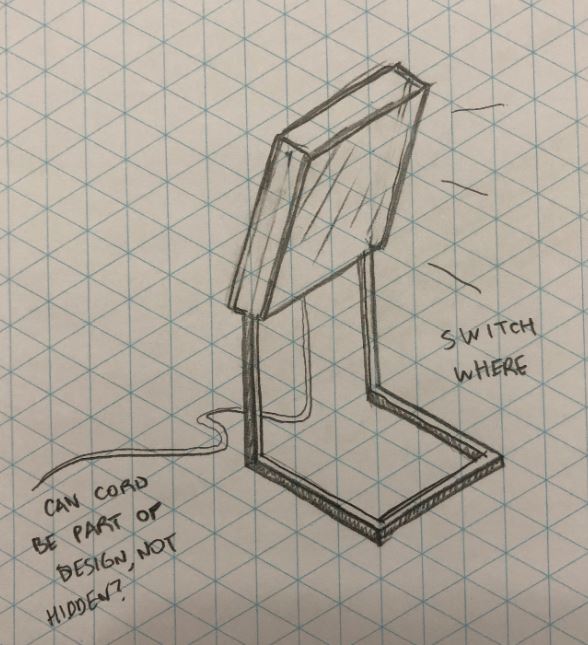 SWITCH
WHERE
CAN CORD
BE PART OF
DESIGN, NOT
HIDDEN?